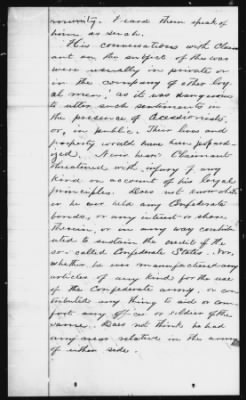 munity. I heard them speak of
him as such.
His conversations with Claim
ant on the subject of the war
were usually in private or
in the company of other loy
al men; as it was dangerous
to utter such sentiments in
the presence of Secessionists,
or, in public. Their lives and
property would have been jeopard-
ized. Never hear Claimant
threatened with injury of any
kind on account of his loyal
principles. Does not know wheth
er he ever held any Confederate
bonds, or any interest or share
therein, or in any way contrib
uted to sustain the credit of the
so-called Confederate States. Nor,
whether he ever manufactured any
articles of any kind for the use
of the Confederate army, or con
tributed any thing to aid or com-
fort any officer or soldier of the
same. Does not think he had
any near relative in the army
of either side.